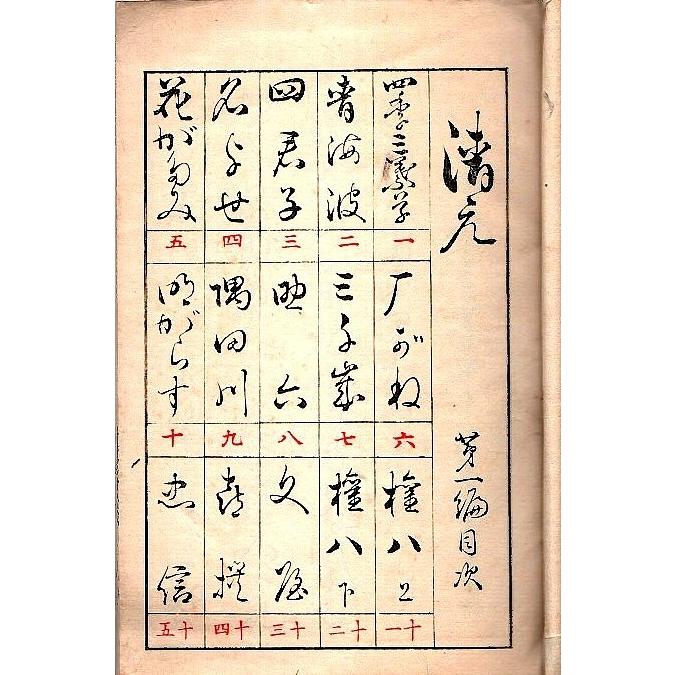 清元
第一編目次
四季三葉草
一
青海波
二
四君子
三
名よせ
四
花がたみ
五
厂がね
六
三千歳
七
助六
八
隅田川
九
明がらす
十
權八 上
十一
權八 下
十二
文屋
十三
喜撰
十四
忠信
十五